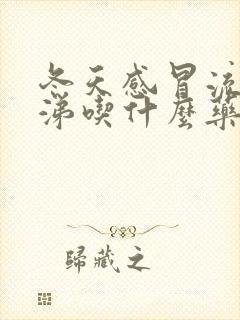 冬天感冒流
涕喫什麼藥
歸藏之